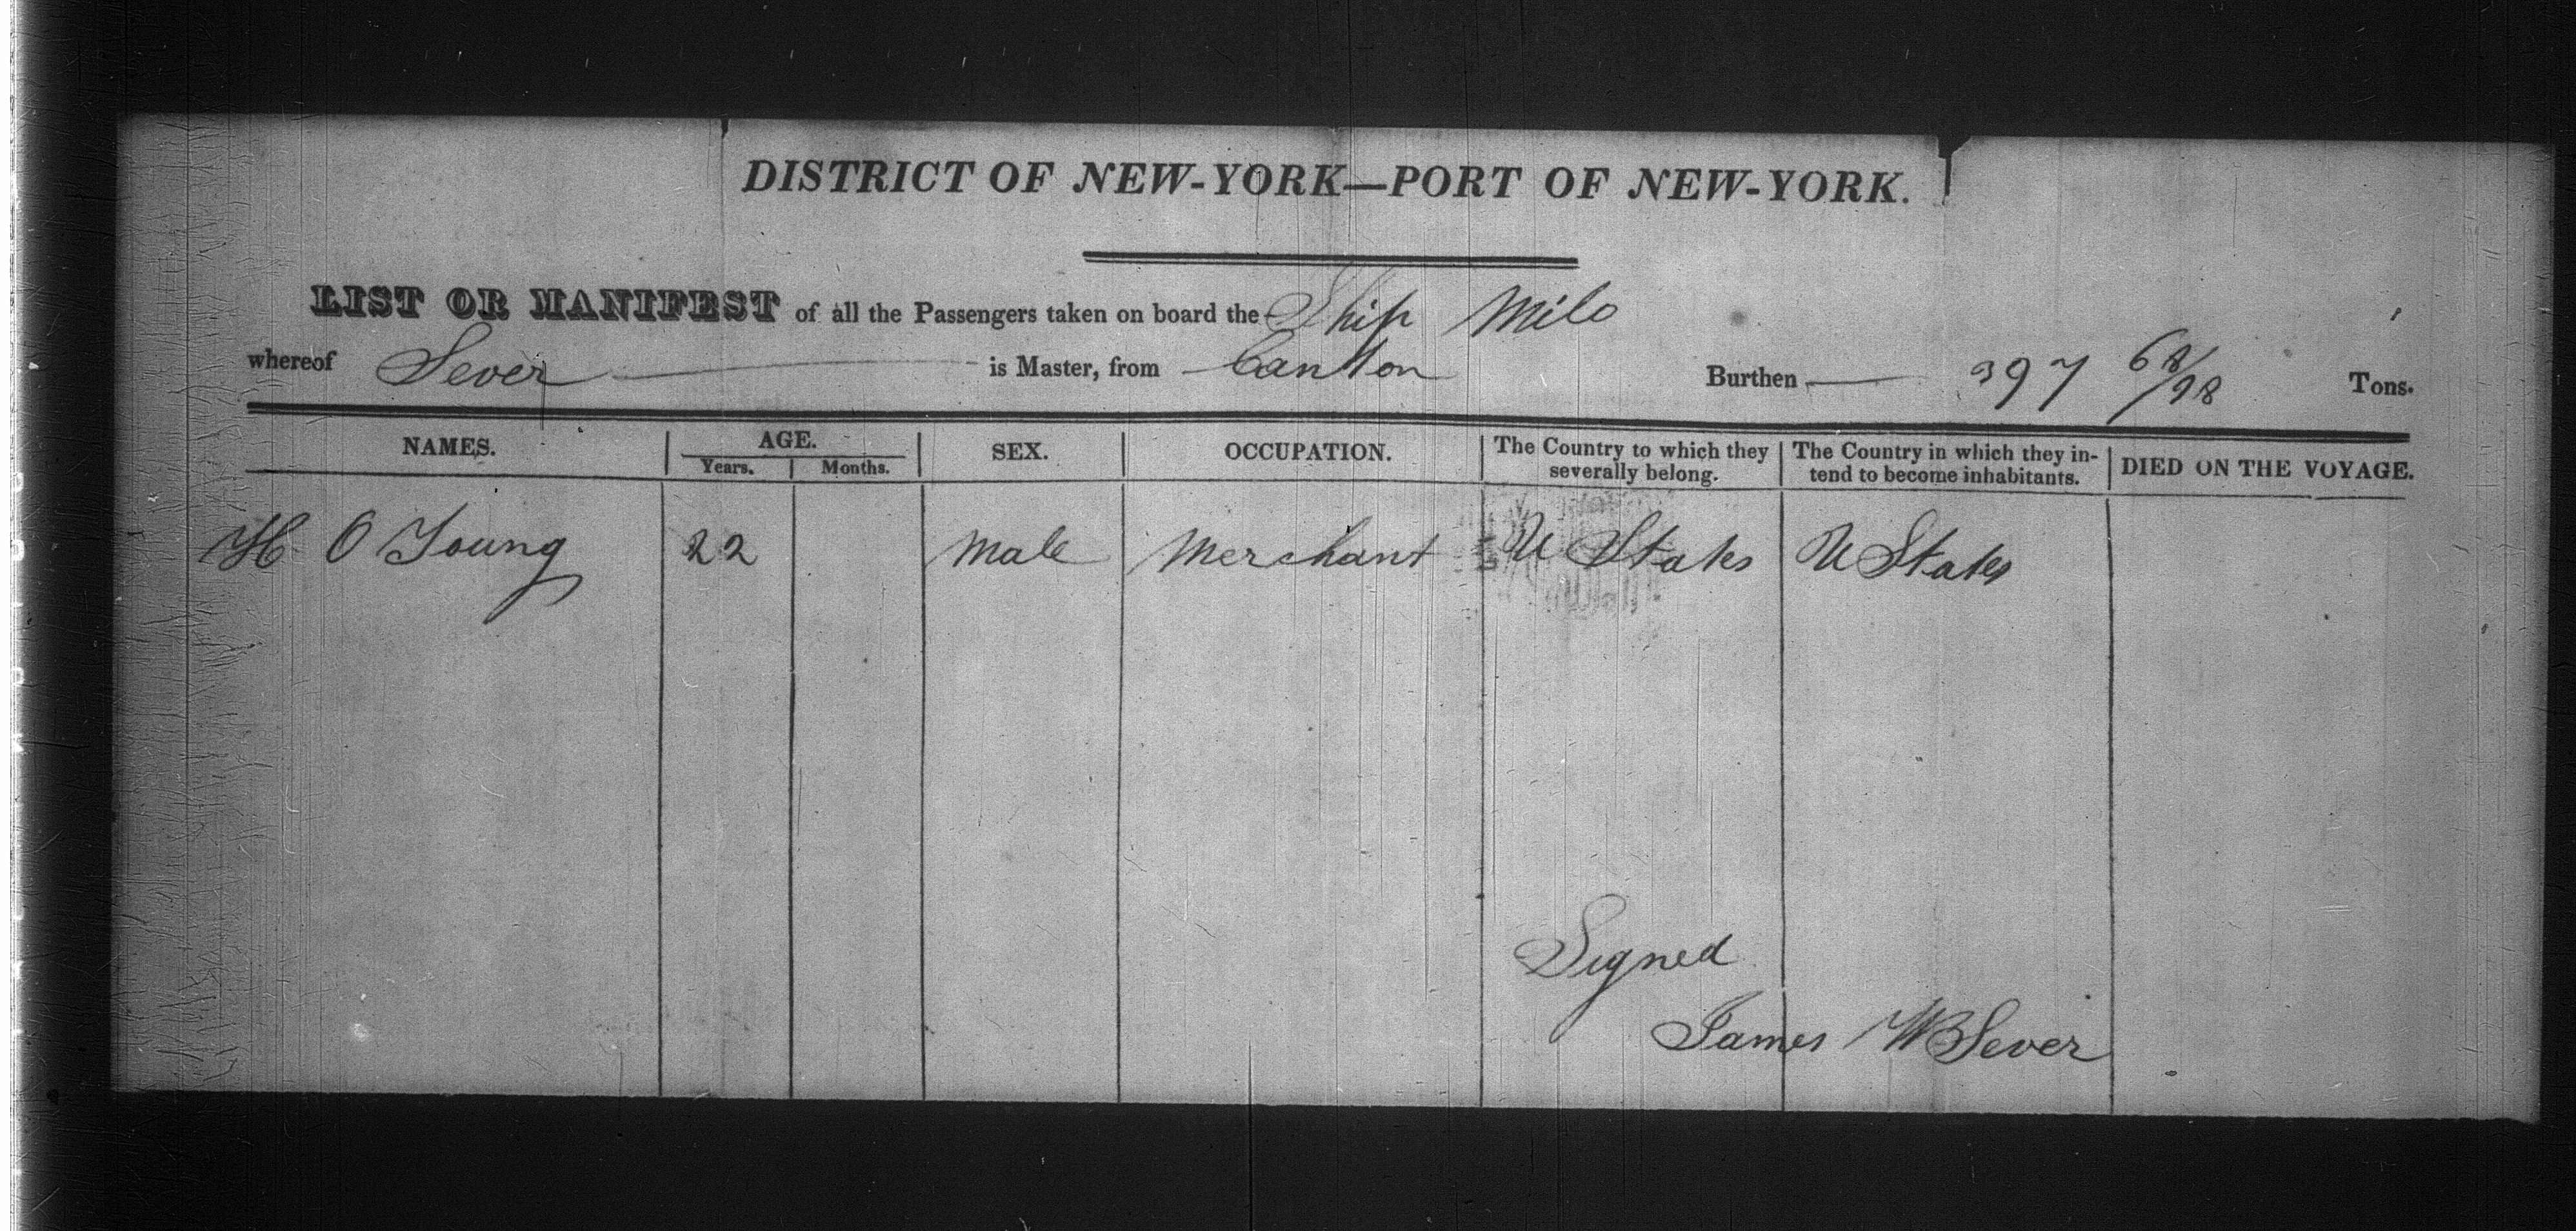 DISTRICT OF NEW-YORK—PORT OF NEW-YORK.
LIST OR MANIFEST of all the Passengers taken on board the Ship Milo
whereof Sever is Master, from Canton Burthen 397 68/98 Tons.
NAMES. AGE. SEX. OCCUPATION. The Country to which they severally belong. The Country in which they in-tend to become inhabitants. DIED ON THE VOYAGE.
Years. Months.
H O Young 22 Male Merchant U States U States
Signed
James W Sever